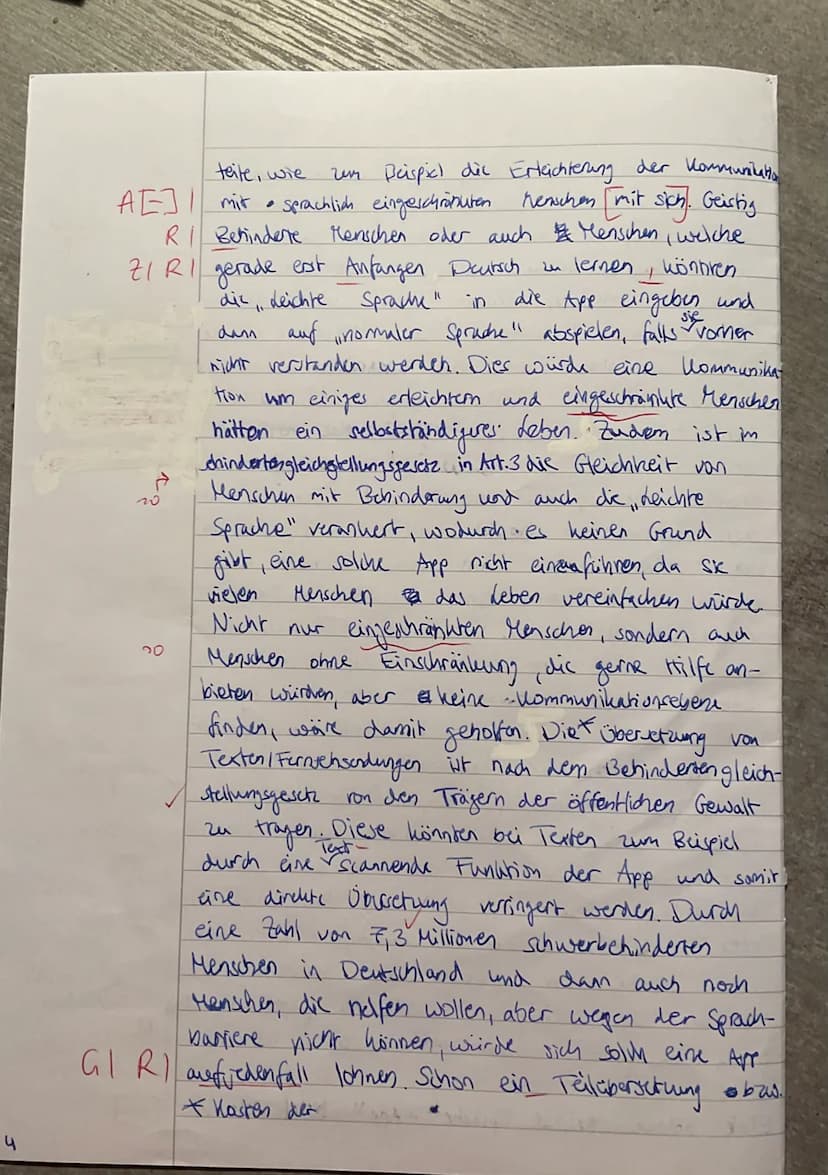 teile, wie zum Beispiel die Erleichterung der Kommunikation
A[-] | mit sprachlich eingeschränkten Menschen [mit sich]. Geistig
R | Behindere Menschen oder auch Menschen, welche
Z | R | gerade erst Anfangen Deutsch zu lernen, könnten
die „Leichte Sprache" in die App eingeben und
dann auf „normaler Sprache" abspielen, falls sie vorher
nicht verstanden werden. Dies würde eine Kommunika-
tion um einiges erleichtern und eingeschränkte Menschen
hätten ein selbstständigeres Leben. Zudem ist im
Behindertengleichstellungsgesetz in Art.3 die Gleichheit von
Menschen mit Behinderung und auch die „Leichte
Sprache" verankert, wodurch es keinen Grund
gibt, eine solche App nicht einzuführen, da sie
vielen Menschen das Leben vereinfachen würde.
Nicht nur eingeschränkten Menschen, sondern auch
Menschen ohne Einschränkung, die gerne Hilfe an-
bieten würden, aber keine Kommunikationsebene
finden, wäre damit geholfen. Die* Übersetzung von
Texten/Fernsehsendungen ist nach dem Behindertengleich-
✓ stellungsgesetz von den Trägern der öffentlichen Gewalt
zu tragen. Diese könnten bei Texten zum Beispiel
durch eine Text-scannende Funktion der App und somit
eine direkte Übersetzung verringert werden. Durch
eine Zahl von 7,3 Millionen schwerbehinderten
Menschen in Deutschland und dann auch noch
Menschen, die helfen wollen, aber wegen der Sprach-
barriere nicht können, würde sich solch eine App
G | R | aufjedenfall lohnen. Schon ein Teilübersetzung bzw.
* Kosten der
4